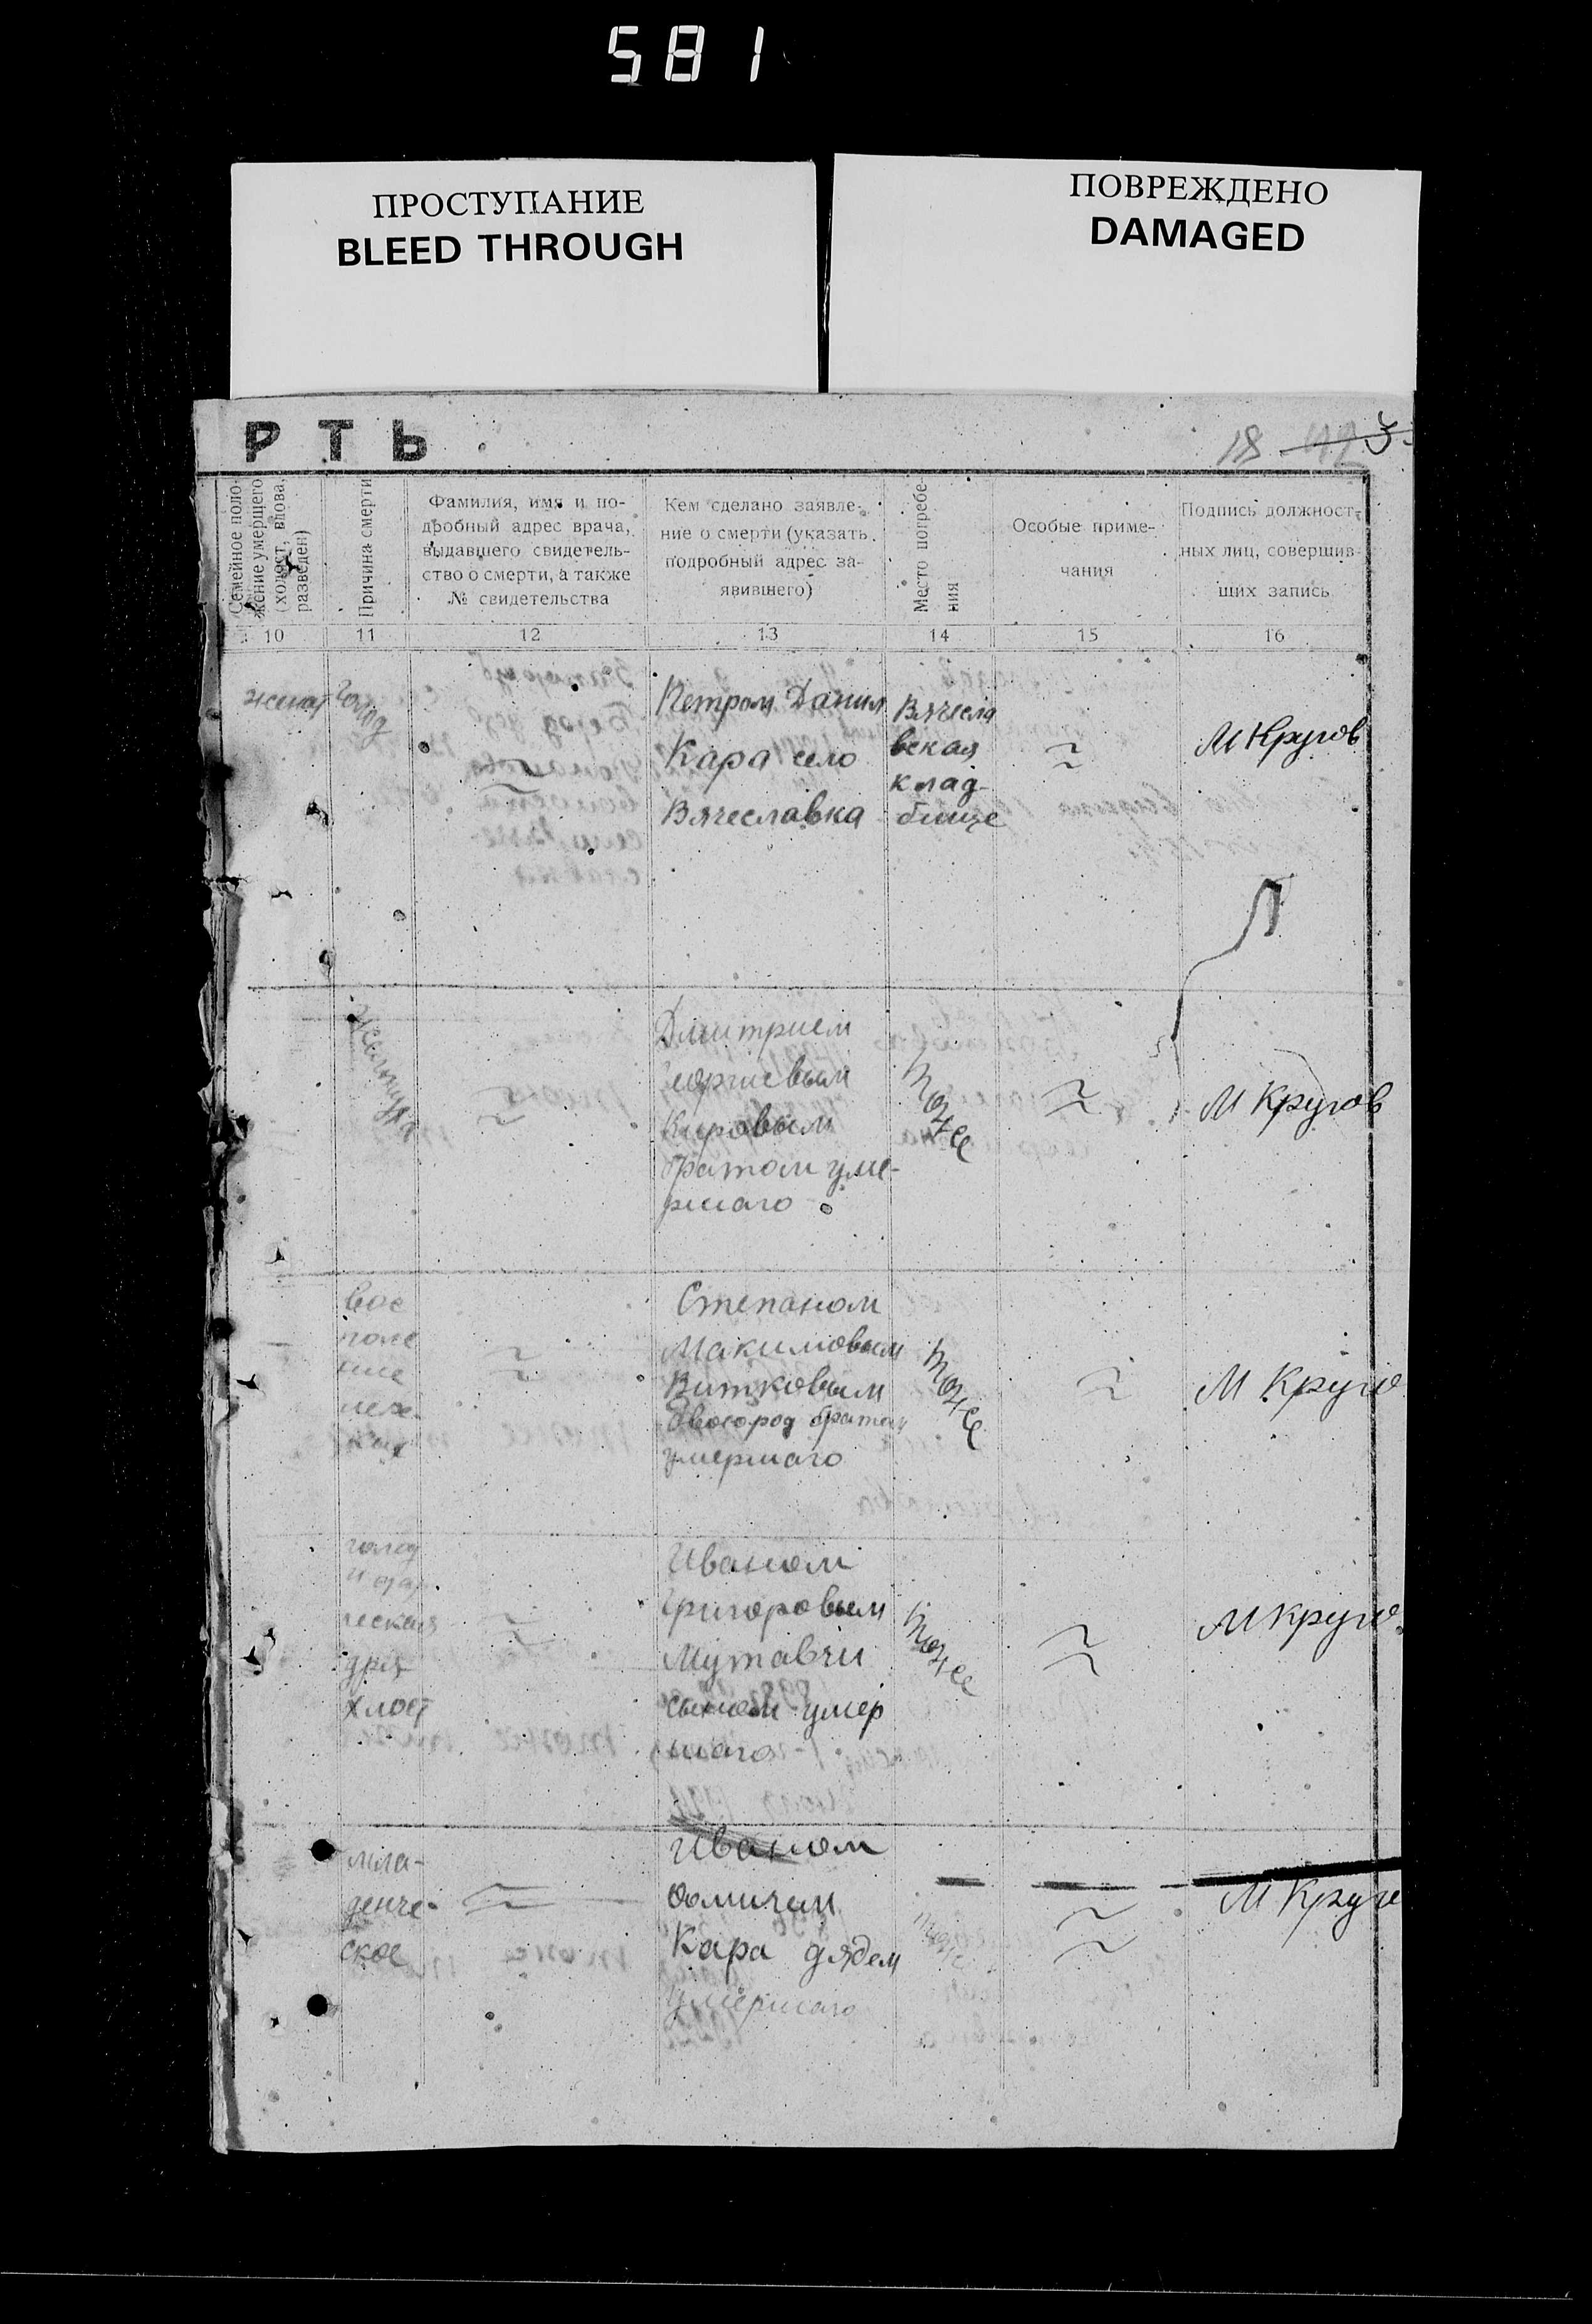 581
ПРОСТУПАНИЕ
BLEED THROUGH
ПОВРЕЖДЕНО
DAMAGED
РТЬ
18
Семейное поло-
жение умершего
(холост, вдова,
разведен)
Причина смерти
Фамилия, имя и по-
дробный адрес врача,
выдавшего свидетель-
ство о смерти, а также
№ свидетельства
Кем сделано заявле-
ние о смерти (указать
подробный адрес за-
явившего)
Место погребе-
ния
Особые приме-
чания
Подпись должност-
ных лиц, совершив-
ших запись
10 11 12 13 14 15 16
женат
голод
Петром Данил
Кара село
Вячеславка
Вячесла
вская
клад-
бище
М Кругов
Дмитрием
Георгиевым
Кировым
братом уме-
ршаго
тоже
М Кругов
вос
поле
ние
лег
ких
Степаном
Макимовым
Витковым
двоюрод братом
умершаго
тоже
М Круго
голод
и
ческая
дрях
хлост
Иваном
Григоровым
Мутавчи
сыном умер
шаго
тоже
М Круго
мла-
денче-
ское
Иваном
Фомичем
Кара дядем
умершаго
тоже
М Круго